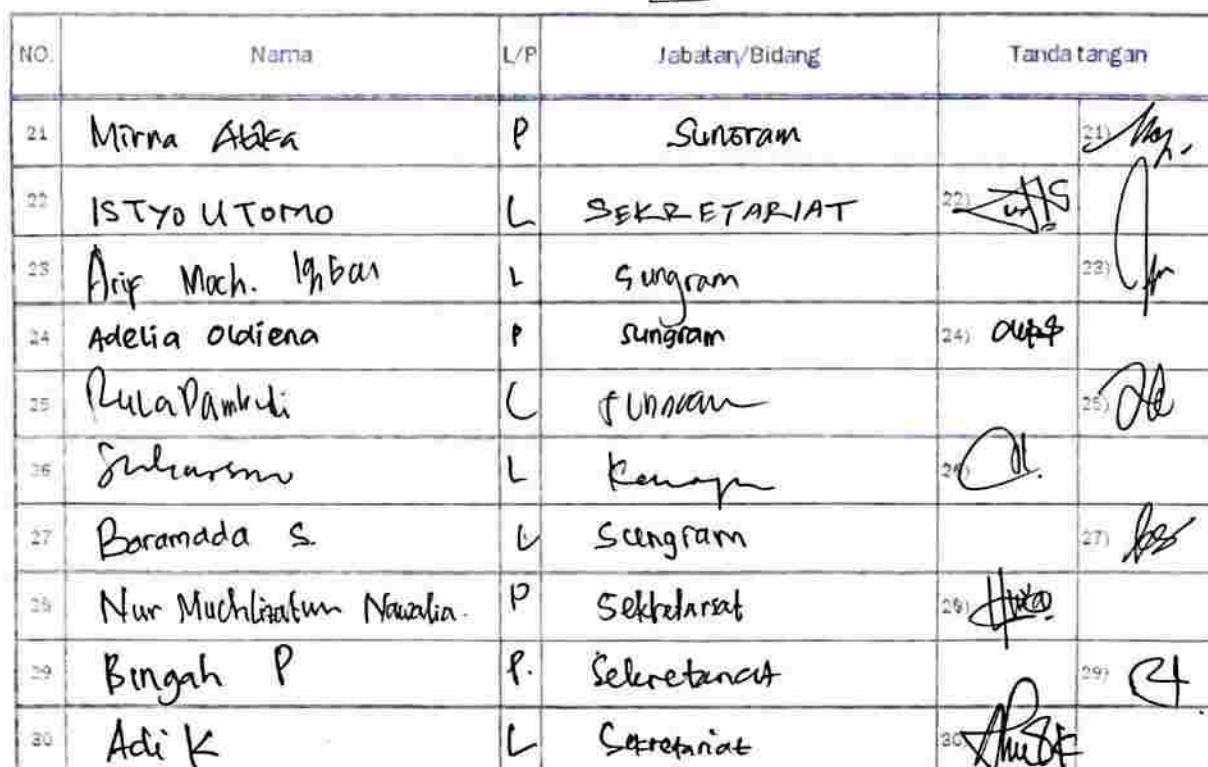 NO. Nama L/P Jabatan/Bidang Tanda tangan
21 Mirna Atika P Sungram 21)
22 ISTYO UTOMO L SEKRETARIAT 22)
23 Arif Moch. Iqbal L Sungram 23)
24 Adelia Oldiena P sungram 24)
25 L 25)
26 L 26)
27 Baramada S. L Sungram 27)
28 Nur Muchlizatun Nawalia. P Sekretariat 28)
29 Bingah P P. Sekretariat 29)
30 Adi K L Sekretariat 30)